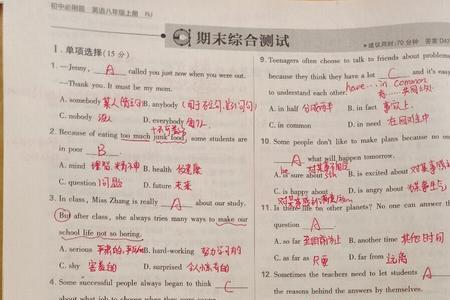 初中必刷题 英语八年级上册 RJ
期末综合测试
建议用时:70分钟 答案D4
I. 单项选择(15分)
1. —Jenny, A called you just now when you were out.
—Thank you. It must be my mom.
A. somebody B. anybody
C. nobody 没人 D. everybody
2. Because of eating too much junk food, some students are
不可数
in poor B .
A. mind B. health
C. question 问题 D. future 未来
3. In class, Miss Zhang is really A about our study.
But after class, she always tries many ways to make our
school life not so boring.
A. serious B. hard-working 努力学习的
C. shy 害羞的 D. surprised
4. Some successful people always began to think C
about what job to choose when they were
9. Teenagers often choose to talk to friends about problems
because they think they have a lot C and it's easy
have...in common
to understand each other.
A. in half B. in fact 事实上
C. in common D. in need
10. Some people don't like to make plans because no
A what will happen tomorrow.
A. is sure about B. is excited about
C. is happy about D. is angry about
11. Is there life on other planets? No one can answer the
question A .
A. so far 到目前为止 B. another time 其他时间
C. as far as 只要 D. far from 远离
12. Sometimes the teachers need to let students A
the reasons behind the answers by themselves.